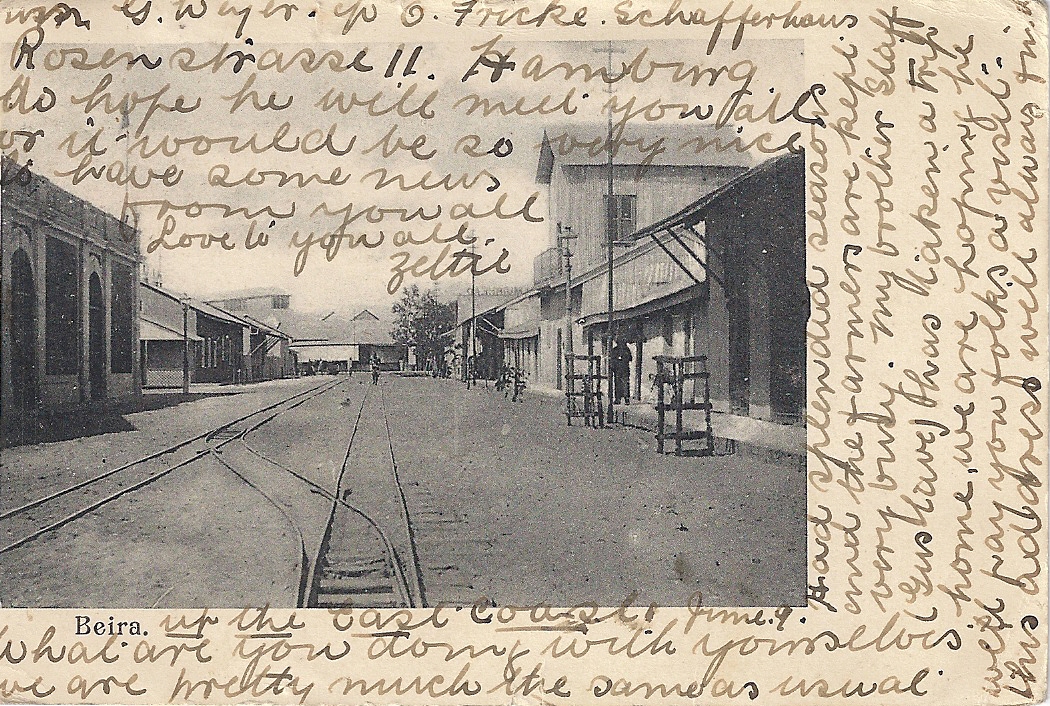 Beira. up the East Coast, June. 9.
What are you doing with yourselves
we are pretty much the same as usual
Had splendid season
and the farmers are kept
very busy. My brother Staff
(Gustave) has taken a trip
home, we are hoping he
will pay you folks a visit.
this address will always find
G. Weyer. c/o O. Fricke. Schafferhaus
Rosenstrasse 11. Hamburg
do hope he will meet you all
for it would be so very nice
to have some news
from you all
Love to you all.